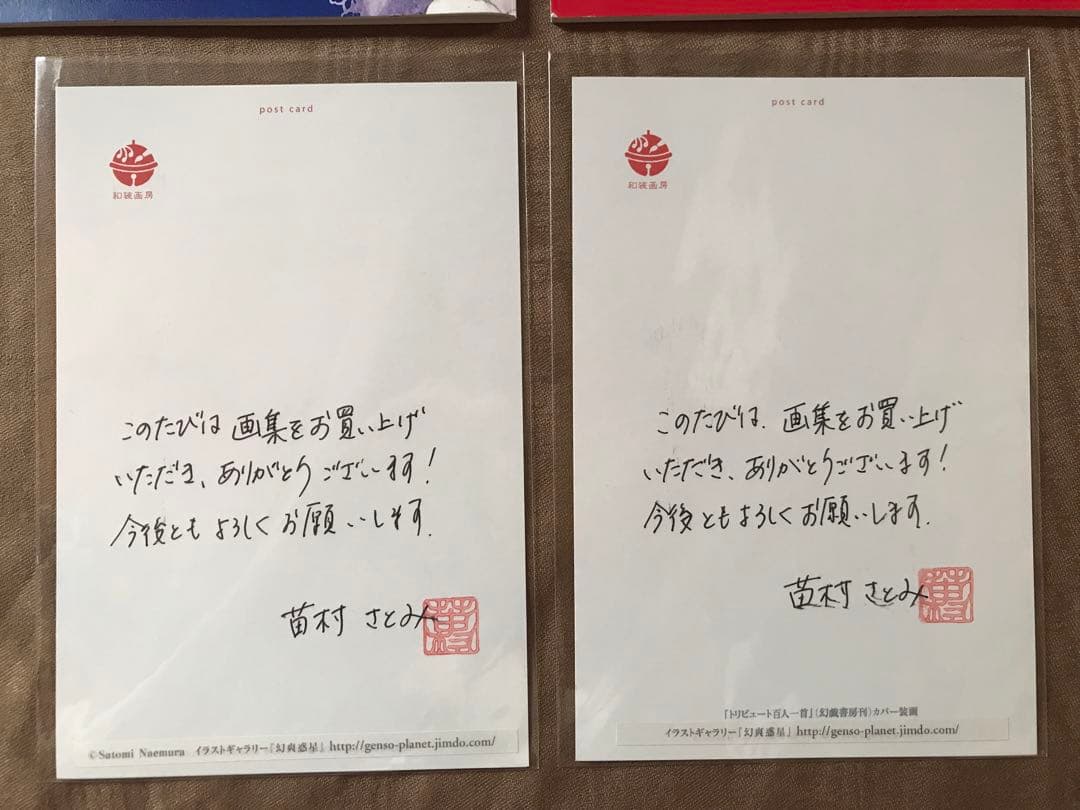 post card
和破画房
このたびは 画集をお買い上げ
いただき、ありがとうございます!
今後とも よろしく お願いします.
苗村 さとみ
©Satomi Naemura イラストギャラリー『幻爽惑星』 http://genso-planet.jimdo.com/
post card
和破画房
このたびは、画集をお買い上げ
いただき、ありがとうございます!
今後ともよろしくお願いします.
苗村 さとみ
『トリビュート百人一首』(幻戯書房刊)カバー装画
イラストギャラリー『幻爽惑星』 http://genso-planet.jimdo.com/